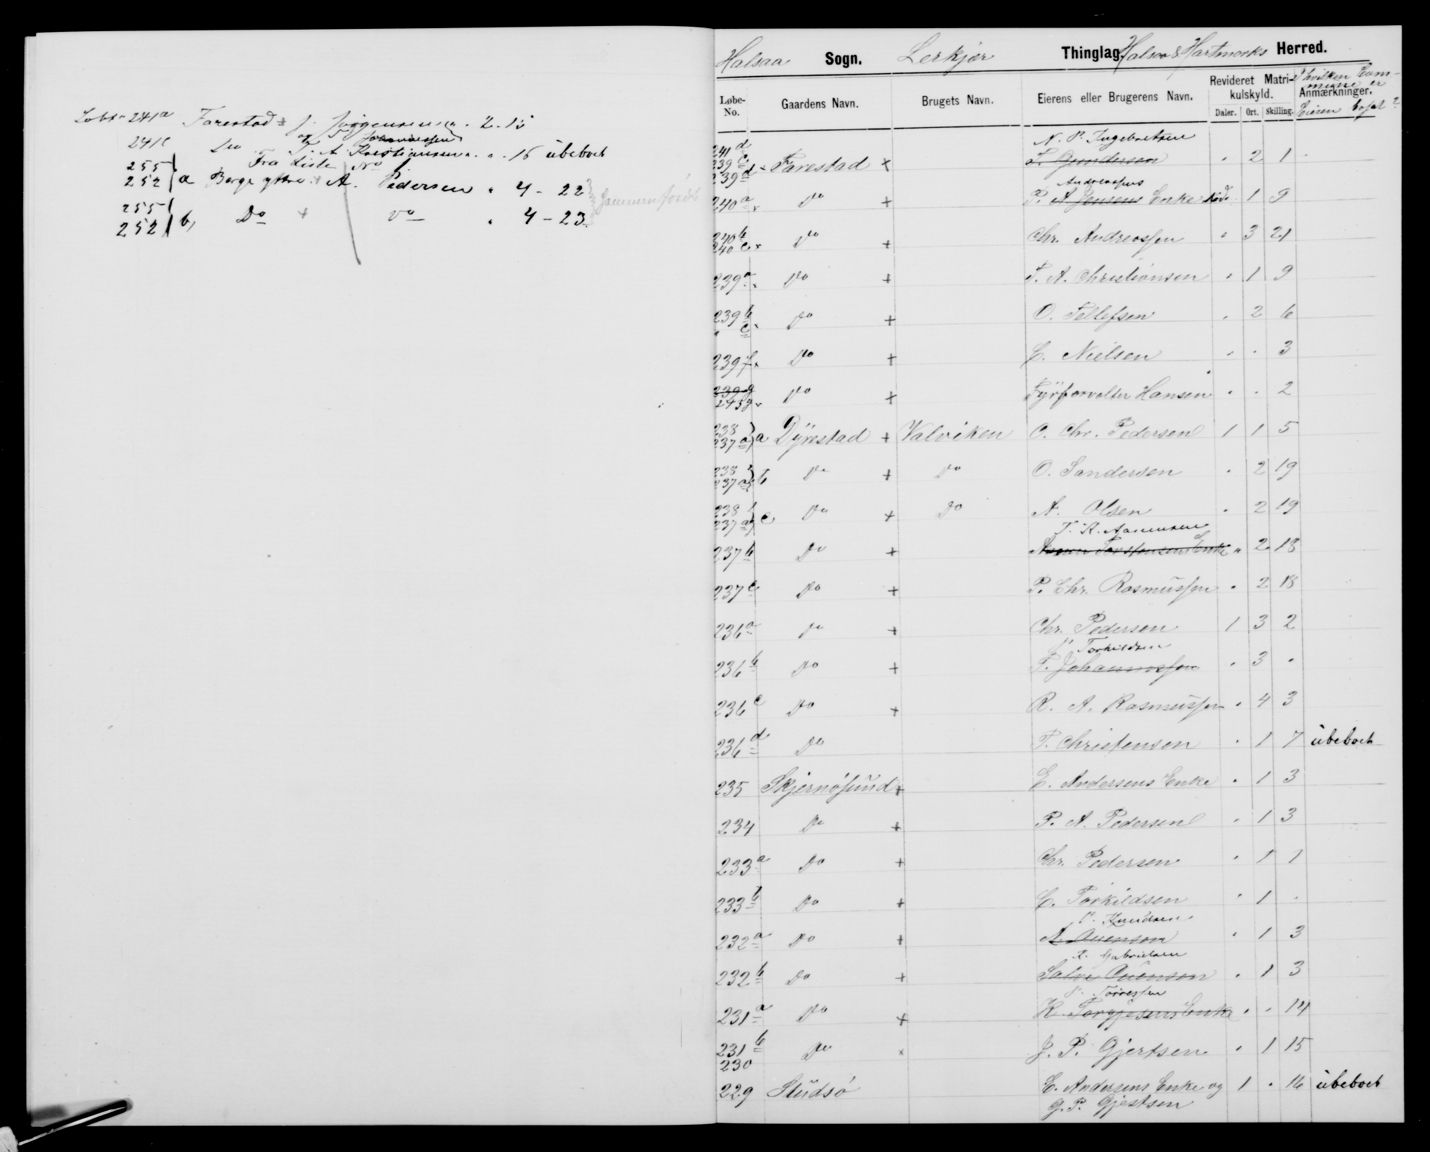 Løbe No 241a Farestad + J. Jørgensen " 2. 15
241c Do T. A. Christiansen " " 15 ubeboet
og T. Johannessen
Fra Liste No 1.
255 } 252 } a Berge ytre + A. Pedersen " 4 - 22
255 } 252 } b, Do + Do " 4 - 23
Halsaa Sogn. Lerkjær Thinglag. Halsaa & Hartmarks Herred.
Løbe-No. Gaardens Navn. Brugets Navn. Eierens eller Brugerens Navn. Revideret Matrikulskyld. Daler. Ort. Skilling. Anmærkninger.
I hvilken Kommune er Eieren bosat?
N. P. Ingebretsen
241d 239c 239d Farestad + T. Gundersen " 2 1
Andreassens
240a Do + P. A. Jensens Enke " 1 9
240b 240c Do + Chr. Andreassen " 3 21
239a Do + T. A. Christiansen " 1 9
239b " c Do + O. Tellefsen " 2 6
239f Do + E. Nielsen " " 3
239g 245g Do + Fyrforvalter Hansen " " 2
238 } 237a } a Dyrestad + Valviken O. Chr. Pedersen 1 1 5
238 } 237a } b Do + Do O. Sandersen " 2 19
238 } 237a } c Do + Do N. Olsen " 2 19
T. A. Aanensen
237b Do + Enke " 2 18
237c Do + P. Chr. Rasmussen " 2 18
236a Do + Chr. Pedersen 1 3 2
Torkildsen
236b Do + T. Johannessen " 3 "
236c Do + R. A. Rasmussen " 4 3
236d Do T. Christensen " 1 7 ubeboet
235 Skjernøsund + E. Andersens Enke " 1 3
234 Do + P. A. Pedersen " 1 3
233a Do + Chr. Pedersen " 1 1
233b Do + E. Torkildsen " 1 "
P. Knudsen
232a Do + A. Auensen " 1 3
T. Gabrielsen
232b Do + Salve Auensen " 1 3
J. Torressen
231a Do + K. Torgjesens Enke " " 14
231b Do + J. P. Gjertsen " 1 15
230
229 Studsø E. Andersens Enke og 1 " 16 ubeboet
G. P. Gjertsen